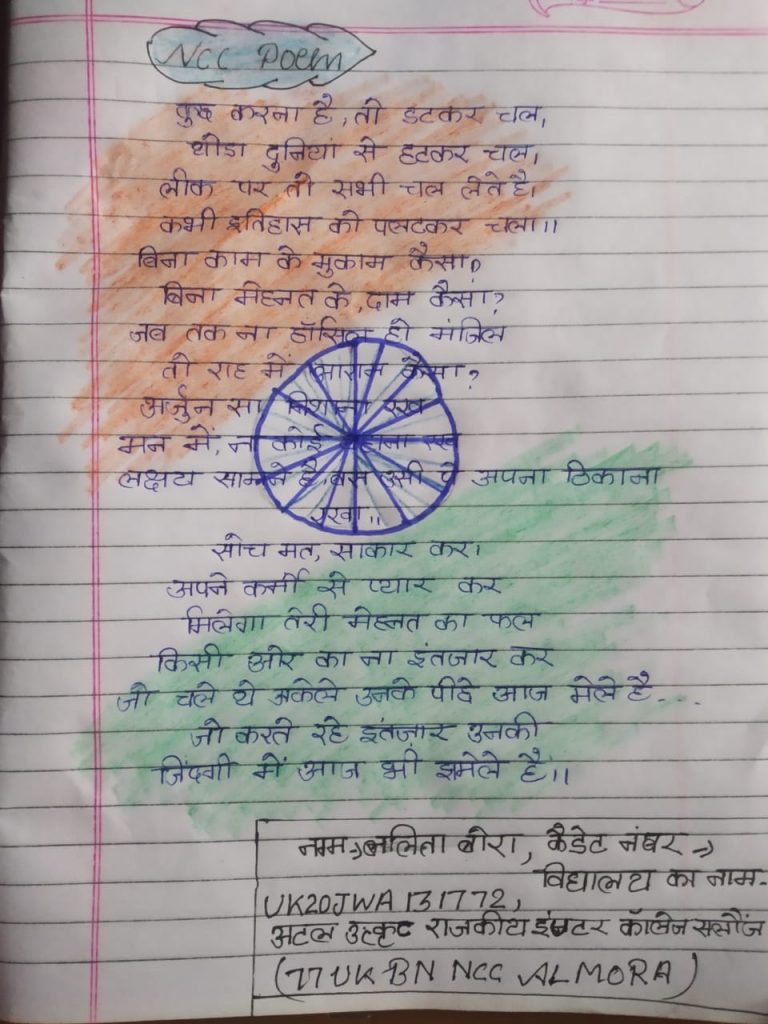 NCC Poem
कुछ करना है, तो डटकर चल,
थोडा दुनियां से हटकर चल,
लीक पर तो सभी चल लेते है।
कभी इतिहास को पलटकर चला।।
बिना काम के मुकाम कैसा?
बिना मेहनत के, दाम कैसा?
जब तक ना हॉसिल हो मंजिल
तो राह में आराम कैसा?
अर्जुन सा निशाना रख
मन में, ना कोई रख
लक्षय सामने है, बस उसी पे अपना ठिकाना
रख।।
सोच मत, साकार कर।
अपने कर्मो से प्यार कर
मिलेगा तेरी मेहनत का फल
किसी ओर का ना इंतजार कर
जो चले थे अकेले उनके पीदे आज मेले है...
जो करते रहे इंतजार उनकी
जिंदगी में आज भी झमेले है।।
नाम→ ललिता बोरा, कैडेट नंबर →
विद्यालय का नाम-
UK20JWA131772,
अटल उत्कृट राजकीय इण्टर कॉलेज सलौंज
(77 UK BN NCC ALMORA)